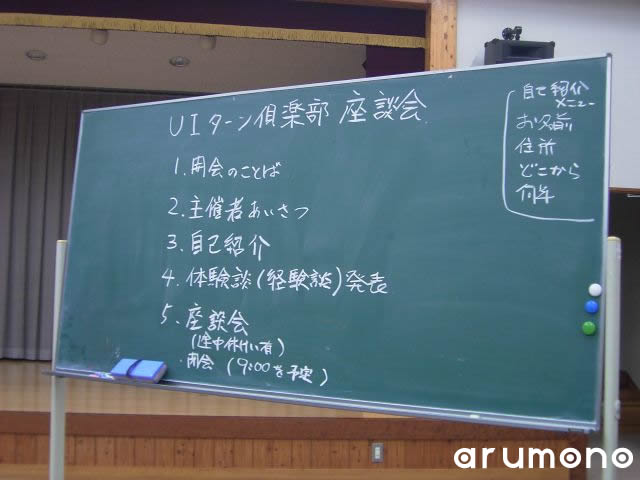 UIターン倶楽部 座談会
1. 開会のことば
2. 主催者あいさつ
3. 自己紹介
4. 体験談(経験談)発表
5. 座談会
(途中休けい有)
・閉会 (9:00を予定)
自己紹介
メニュー
お名前
住所
どこから
何年
arumono